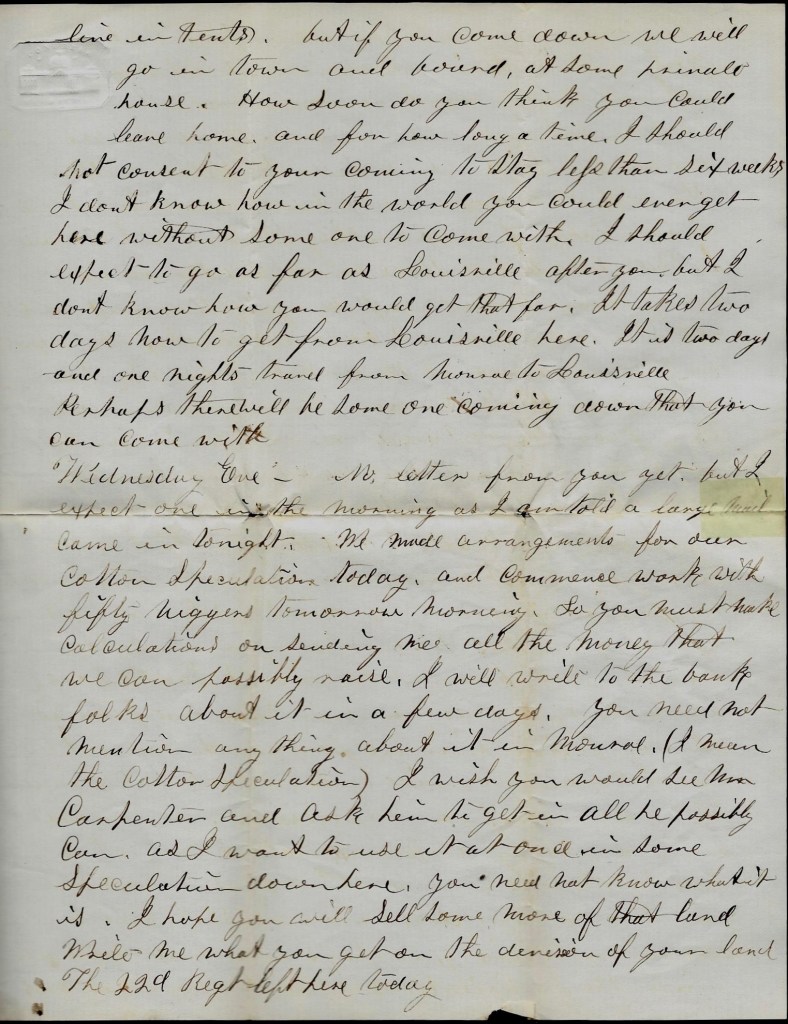 live in tents. but if you come down we will
go in town and board, at some private
house. How soon do you think you could
leave home. and for how long a time. I should
not consent to your coming to stay less than six weeks
I dont know how in the world you could ever get
here without some one to come with. I should
expect to go as far as Louisville after you. but I
dont know how you would get that far. It takes two
days now to get from Louisville here. It is two days
and one nights travel from Monroe to Louisville
Perhaps there will be some one coming down that you
can come with
"Wednesday Eve" - No letter from you yet. but I
expect one in the morning as I am told a large mail
came in tonight. We made arrangements for our
Cotton Speculation today. and commence work with
fifty niggers tomorrow morning. So you must make
calculations on sending me all the money that
we can possibly raise. I will write to the bank
folks about it in a few days. You need not
mention any thing about it in Monroe. (I mean
the Cotton Speculation) I wish you would see
Carpenter and ask him to get in all he possibly
can. as I want to use it at once in some
speculation down here. you need not know what it
is. I hope you will sell some more of that land
Write me what you get on the devision of your land
The 22d Regt left here today